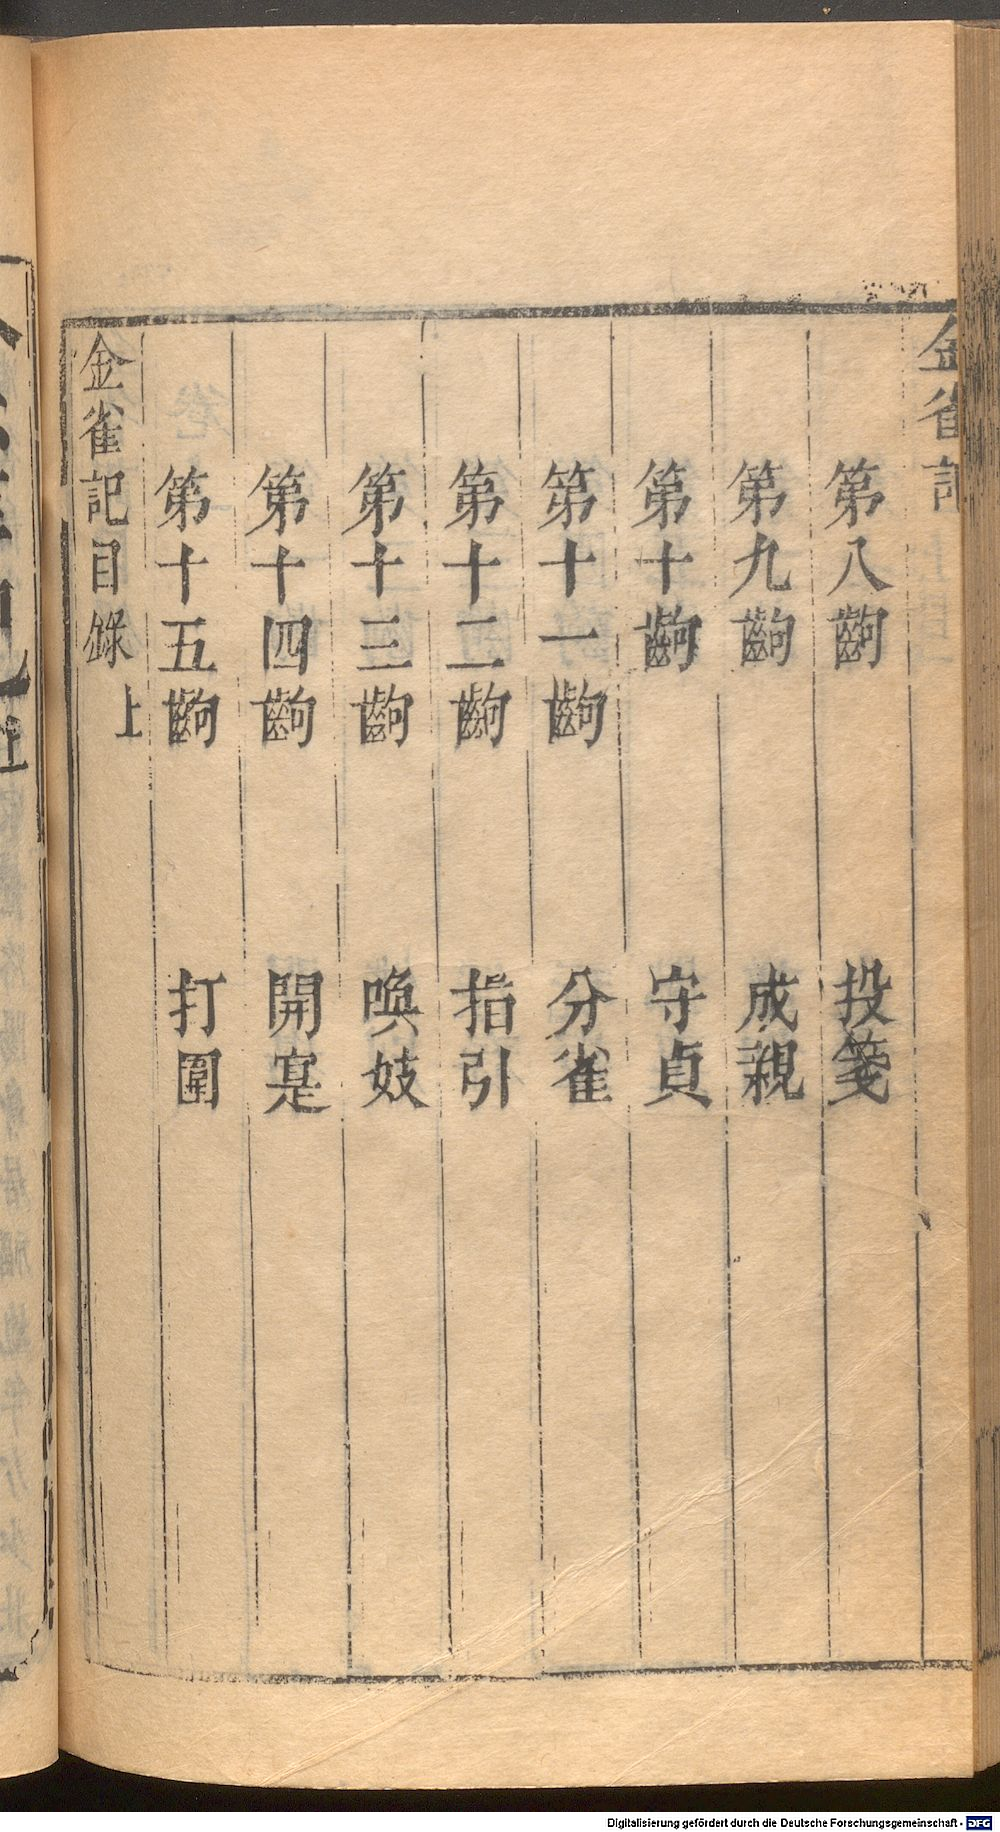 金雀記
第八齣　投箋
第九齣　成親
第十齣　守貞
第十一齣　分雀
第十二齣　指引
第十三齣　喚妓
第十四齣　開宴
第十五齣　打圍
金雀記目錄上
Digitalisierung gefördert durch die Deutsche Forschungsgemeinschaft - DFG